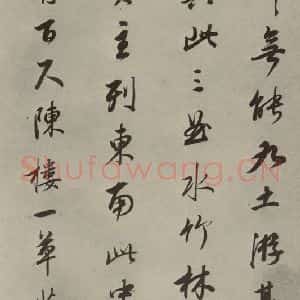 無能九土游其
此三水竹林
主列東南此
百尺陳樓一草
Shufawang.CN